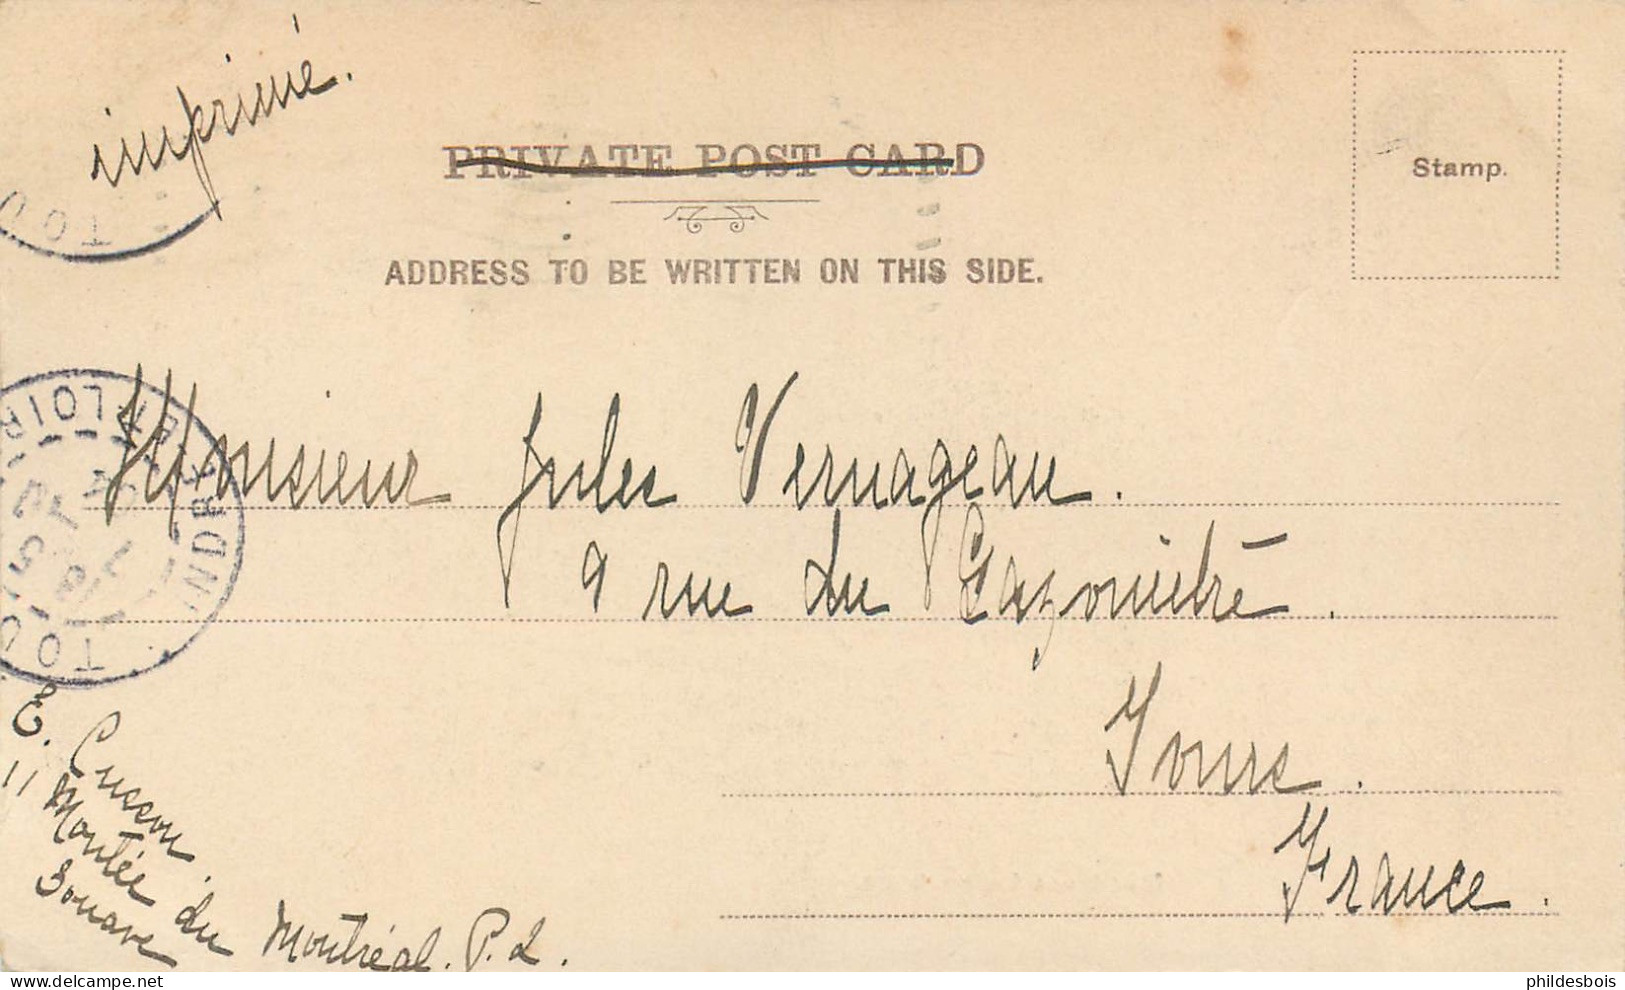 imprimé.
PRIVATE POST CARD
Stamp.
ADDRESS TO BE WRITTEN ON THIS SIDE.
TOU
INDRE ET LOIR
TOU
Monsieur Jules Vernageau.
9 rue du Gazomètre.
Tours.
France.
E. Cusson.
11 Montée du
Zouave
Montréal. P.Q.
phildesbois